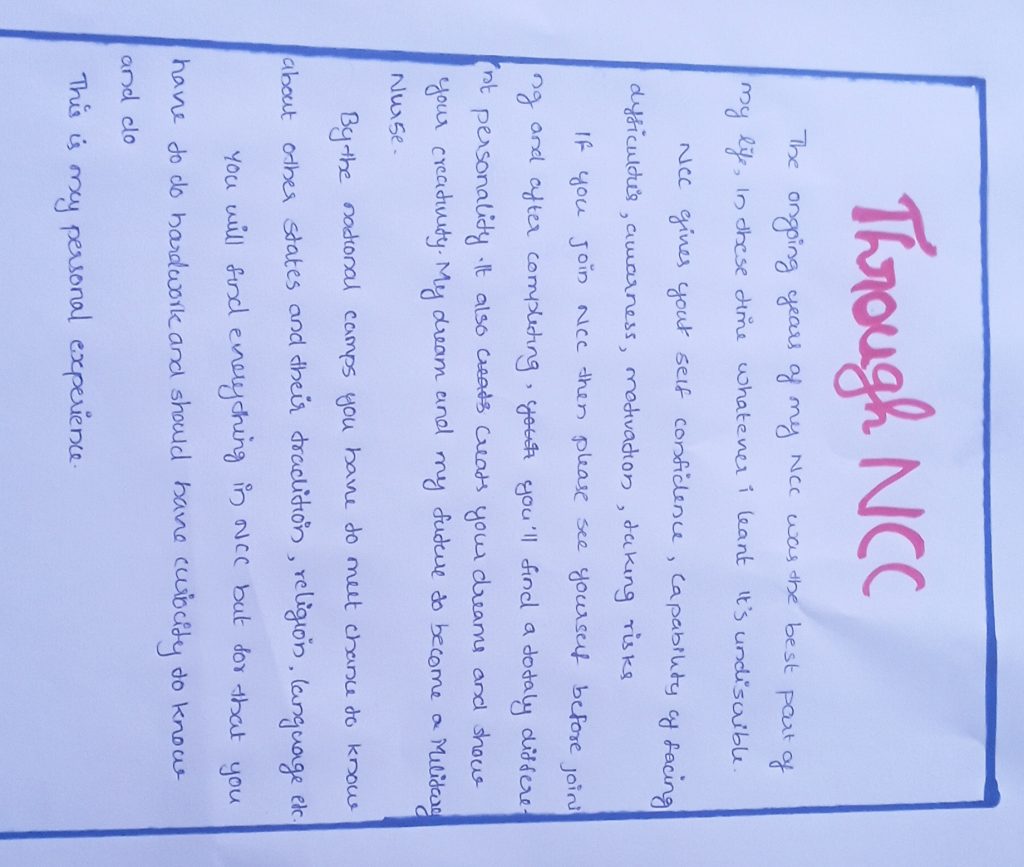 Through NCC
The ongoing years of my NCC was the best part of
my life, in these time whatever i leant it's undiscrible.
NCC gives yout self confidence, capability of facing
difficulties, awarness, motivation, taking risks
If you join NCC then please see yourself before joini
ng and after completing, you'll find a totaly differe-
nt personality. It also creats your dreams and show
your creativity. My dream and my future to become a Military
Nurse.
By the national camps you have to meet chance to know
about other states and their tradition, religion, language etc.
You will find everything in NCC but for that you
have to do hardwork and should have curiocity to know
and do
This is my personal experience.